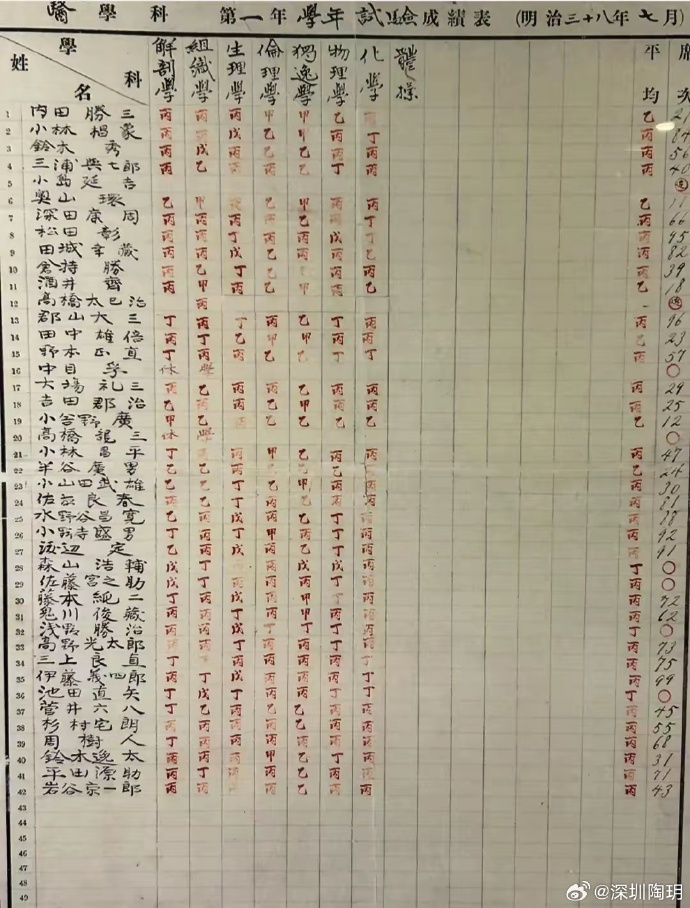 醫學科 第一年學年試驗成績表 (明治三十八年七月)
學科 姓名 解剖學 組織學 生理學 倫理學 獨逸學 物理學 化學 體操 平均 席次
1 内田勝三 丙 丙 丙 甲 甲 乙 乙 21
2 小林 丙 丙 戊 乙 甲 丙 丁 丙 84
3 鈴木秀 丙 戊 丙 乙 乙 丙 丙 丙 56
4 三浦與七郎 丙 乙 丙 乙 乙 丁 丙 丙 40
5 小島延吉
6 奥山環 乙 甲 丙 乙 甲 丙 丙 乙 11
7 深田康周 丙 丙 丙 丙 乙 丙 丁 丙 66
8 松田彰 丙 丙 丁 丙 丙 戊 丙 95
9 田城幸藏 丙 丙 丙 乙 丙 乙 丙 82
10 倉持勝 丙 乙 丁 乙 丙 乙 丙 39
11 酒井齊 丙 甲 丙 甲 甲 丙 乙 乙 18
12 高橋太巳治 丙
13 郡山大三 丁 丙 丁 丙 乙 丁 丙 丙 96
14 田中雄倍 丙 丁 乙 甲 甲 丙 丙 丙 23
15 野本正直 丁 丙 丙 乙 乙 丁 丁 丙 57
16 中目 休學
17 大場礼三 丙 乙 丙 丙 乙 丙 丙 丙 29
18 吉田郡治 乙 丙 丙 乙 甲 丙 丙 丙 25
19 小谷野廣 甲 乙 丙 乙 乙 乙 乙 乙 12
20 高橋龍三 休學
21 小林昌平 丁 丙 丙 甲 乙 丙 丙 丙 47
22 半谷廣男 乙 乙 丙 乙 乙 丙 丙 乙 24
23 小山田武雄 乙 乙 丁 乙 甲 丙 丁 丙 30
24 佐良春 丙 乙 丁 丙 乙 丙 丙 丙 81
25 水野谷昌寛 乙 丙 戊 丙 乙 丁 丙 丙 88
26 小野寺盛男 丁 丙 戊 甲 丙 丁 丁 丙 92
27 渡辺定 乙 丙 戊 丙 乙 丁 丙 丙 91
28 森山浩輔 戊 丁 戊 丙 丙 戊 丙 丁
29 佐藤宮之助 戊 丁 戊 丙 丙 戊 丙 丙
30 藤本純二 丁 丙 丙 丙 甲 丁 丙 丙 72
31 鬼川俊藏 丙 丙 丁 丙 甲 丙 丙 丙 62
32 浅野勝治 丙 丙 戊 丁 丁 丁 丙 丁
33 高野光太郎 丙 丙 丁 丙 乙 丙 丁 丙 73
34 三上良直 丁 丁 丙 丙 丙 丁 丙 75
35 伊藤義四郎 丁 丙 戊 丙 丙 丙 丙 丙 99
36 池田直矢 丁 戊 丁 丙 丙 丁 丁 丁
37 菅井六八 丁 丙 丁 乙 乙 丙 丙 丙 45
38 杉村宅朗 丙 丙 丙 丙 乙 丙 丙 丙 55
39 周樹人 丁 丙 丙 乙 丙 丙 丙 丙 68
40 鈴木逸太 丙 乙 丙 甲 乙 丁 丙 丙 31
41 平田源助 丙 丁 丙 丙 丙 丙 丙 丙 71
42 岩谷宗一郎 丙 丙 丙 甲 乙 丙 丙 丙 43
43
44
45
46
47
48
49
@深圳陶玥